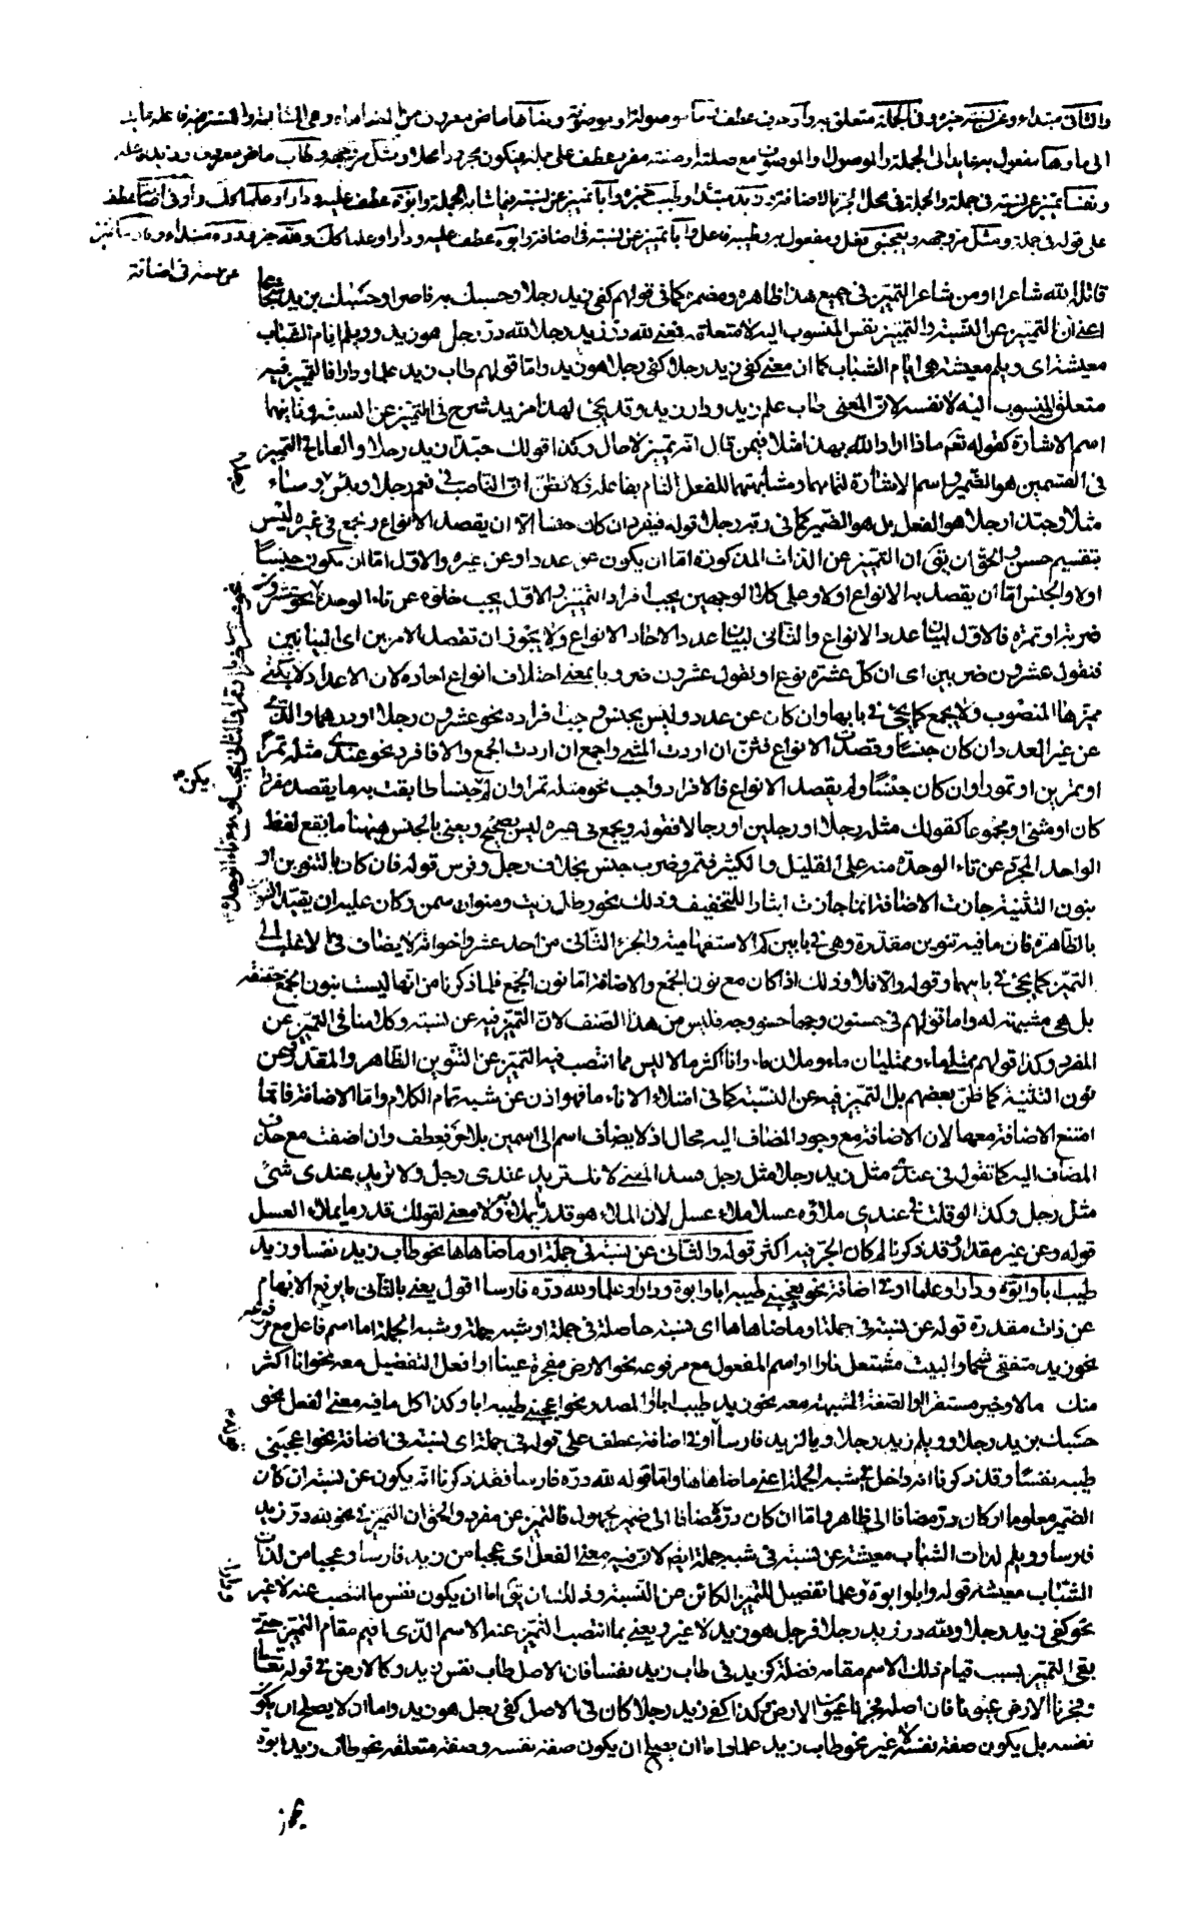 والثانى مبتداء وعن نسبة خبره وفى الجملة متعلق به وأو حرف عطف وما موصولة او موصوفة وضاهاها ماض معروف من المضاهاة وهى المشابهة والمستتر فيه فاعله عايد
الى ما وها مفعول به عايد الى الجملة والموصول او الموصوف مع صلته او صفته مفرد عطف على جملة فيكون مجرورا محلا ومثل مر وجهه وطاب ماض معروف وزيد فاعله
ونفسا تميز عن نسبة فى جملة والجملة فى محل الجر بالاضافة وزيد مبتدأ وطيب خبره وأبا تميز عن نسبة فيما شابه الجملة وابوة عطف عليه ودارا وعلما كذلك وأو فى اضافة عطف
على قوله فى جملة ومثل مر وجهه ويعجبنى فعل ومفعول به وطيبه فاعل وأبا تميز عن نسبة فى اضافة وابوة عطف عليه ودارا وعلما كذلك ولله خبر ودره مبتداء وفارسا تميز
عن نسبة فى اضافة
قاتل الله شاعرا او من شاعر التميز فى جميع هذا ظاهره ومضمره كما فى قولهم كفى زيد رجلا وحسبك به ناصرا وحسبك بزيد شجاعا
اعنى ان التميز عن النسبة والتميز نفس المنسوب اليه لا متعلقه فمعنى لله در زيد رجلا لله در رجل هو زيد وويلم ايام الشباب
معيشة اى ويلم معيشة هى ايام الشباب كما ان معنى كفى زيد رجلا كفى رجل هو زيد واما قولهم طاب زيد علما ودارا فالتميز فيه
متعلق المنسوب اليه لا نفسه لان المعنى طاب علم زيد ودار زيد وقد يجئ لهذا مزيد شرح فى التميز عن النسبة وثانيهما
اسم الاشارة كقوله تعم ماذا اراد الله بهذا مثلا فيمن قال انه تميز لا حال وكذا قولك حبذا زيد رجلا والعامل فى التميز
فى القسمين هو الضمير واسم الاشارة لتمامهما ومشابهتهما للفعل التام بفاعله ولا تظن ان الناصب فى نعم رجلا وبئس وساء
مثلا وحبذا رجلا هو الفعل بل هو الضمير كما فى ربه رجلا قوله فيفرد ان كان جنسا الا ان يقصد الانواع ويجمع فى غيره ليس
بتقسيم حسن والحق ان يق ان التميز عن الذات المذكورة اما ان يكون عن عدد او عن غيره والاول اما ان يكون جنسا
اولا والجنس اما ان يقصد به الانواع اولا وعلى كلا الوجهين يجب افراد التميز والاول يجب خلوه عن تاء الوحدة نحو عشرون
ضربة او تمرة فالاول لبيان عدد الانواع والثانى لبيان عدد الاحاد لا الانواع ولا يجوز ان تقصد الامرين اى البيانين
فتقول عشرون ضربين اى ان كل عشرة نوع او تقول عشرون ضروبا بمعنى اختلاف انواع احاده لان الاعداد لا يكون
مميزها المنصوب ولا يجمع كما يجئ فى بابها وان كان عن عدد وليس بجنس وجب افراده نحو عشرون رجلا او درهما والذى
عن غير العدد ان كان جنسا وقصدت الانواع فثن ان اردت المثنى واجمع ان اردت الجمع والا فافرد نحو عندى مثله تمرا
او تمرين او تمورا وان كان جنسا ولم يقصد الانواع فالافراد واجب نحو مثله تمرا وان لم يكن جنسا طابقت به ما يقصد مفردا
كان او مثنى او مجموعا كقولك مثله رجلا او رجلين او رجالا فقوله ويجمع فى غيره ليس بصحيح ويعنى بالجنس ههنا ما يقع لفظ
الواحد المجرد عن تاء الوحدة منه على القليل والكثير فتمر وضرب جنس بخلاف رجل وفرس قوله فان كان بالتنوين او
بنون التثنية جازت الاضافة انما جازت ايثارا للتخفيف وذلك نحو رطل زيت ومنوان سمن وكان عليه ان يقيد التنوين
بالظاهرة فان ما فيه تنوين مقدرة وهى فى بابين كم الاستفهامية والجزء الثانى من احد عشر واخواته لا يضاف فى الاغلب الى
التميز كما يجئ فى بابهما وقوله والا فلا وذلك اذا كان مع نون الجمع والاضافة اما نون الجمع فلما ذكرنا من انها ليست بنون الجمع حقيقة
بل هى مشبهة له واما قولهم فى حسنون وجها حسنو وجه فليس من هذا الصنف لان التميز فيه عن نسبة وكلامنا فى التميز عن
المفرد وكذا قولهم ممتلئ ماء وممتليان ماء وملآن ماء وانا اكثر مالا ليس مما انتصب فيه التميز عن التنوين الظاهر والمقدر وعن
نون التثنية كما ظن بعضهم بل التميز فيه عن النسبة كما فى امتلاء الاناء ماء فهو اذن عن شبه تمام الكلام واما الاضافة فانما
امتنع الاضافة معها لان الاضافة مع وجود المضاف اليه محال اذ لا يضاف اسم الى اسمين بلا حرف عطف وان اضفت مع حذف
المضاف اليه كما تقول فى عندى مثل زيد رجلا مثل رجل فسد المعنى لانك تريد عندى رجل ولا تريد عندى شئ
مثل رجل وكذا لو قلت فى عندى ملاؤه عسلا ملاء عسل لان الملاء هو قدر ما يملاء به ولا معنى لقولك قدر ما يملاء العسل
قوله وعن غير مقدار وقد ذكرنا لم كان الجر فيه اكثر قوله والثانى عن نسبة فى جملة او ما ضاهاها نحو طاب زيد نفسا وزيد
طيب ابا وابوة ودارا وعلما او فى اضافة نحو يعجبنى طيبه ابا وابوة ودارا وعلما ولله دره فارسا اقول يعنى بالثانى ما يرفع الابهام
عن ذات مقدرة قوله عن نسبة فى جملة او ما ضاهاها اى نسبة حاصلة فى جملة او شبه جملة وشبه الجملة اما اسم فاعل مع مرفوعه
نحو زيد متفقئ شحما والبيت مشتعل نارا او اسم المفعول مع مرفوعه نحو الارض مفجرة عيونا او افعل التفضيل معه نحو انا اكثر
منك مالا وخير مستقرا او الصفة المشبهة معه نحو زيد طيب ابا او المصدر نحو اعجبنى طيبه ابا وكذا كل ما فيه معنى الفعل نحو
حسبك بزيد رجلا وويلم زيد رجلا ويا لزيد فارسا او فى اضافة عطف على قوله فى جملة اى نسبة فى اضافة نحو اعجبنى
طيبه نفسا وقد ذكرنا انه داخل فى شبه الجملة اعنى ما ضاهاها واما قوله لله دره فارسا فقد ذكرنا انه يكون عن نسبة ان كان
الضمير معلوما او كان در مضافا الى ظاهر واما ان كان در مضافا الى ضمير مجهول فالتميز عن مفرد والحق ان التميز فى نحو لله در زيد
فارسا وويلم لذات الشباب معيشة عن نسبة فى شبه جملة ايضم لان فيه معنى الفعل اى عجبا من زيد فارسا وعجبا من لذات
الشباب معيشة قوله وابا وابوة وعلما تفصيل للتميز الكائن عن النسبة وذلك ان يق اما ان يكون نفس ما انتصب عنه لا غير
نحو كفى زيد رجلا ولله در زيد رجلا فرجل هو زيد لا غير ويعنى بما انتصب التميز عنه الاسم الذى اقيم مقام التميز حتى
بقى التميز بسبب قيام ذلك الاسم مقامه فضلة كزيد فى طاب زيد نفسا فان الاصل طاب نفس زيد وكالارض فى قوله تعالى
وفجرنا الارض عيونا فان اصله فجرنا عيون الارض وكذا كفى زيد رجلا كان فى الاصل كفى رجل هو زيد واما ان لا يصلح ان يكون
نفسه بل يكون صفة نفسه لا غير نحو طاب زيد علما واما ان يصلح ان يكون صفة نفسه وصفة متعلقه نحو طاب زيد ابوة